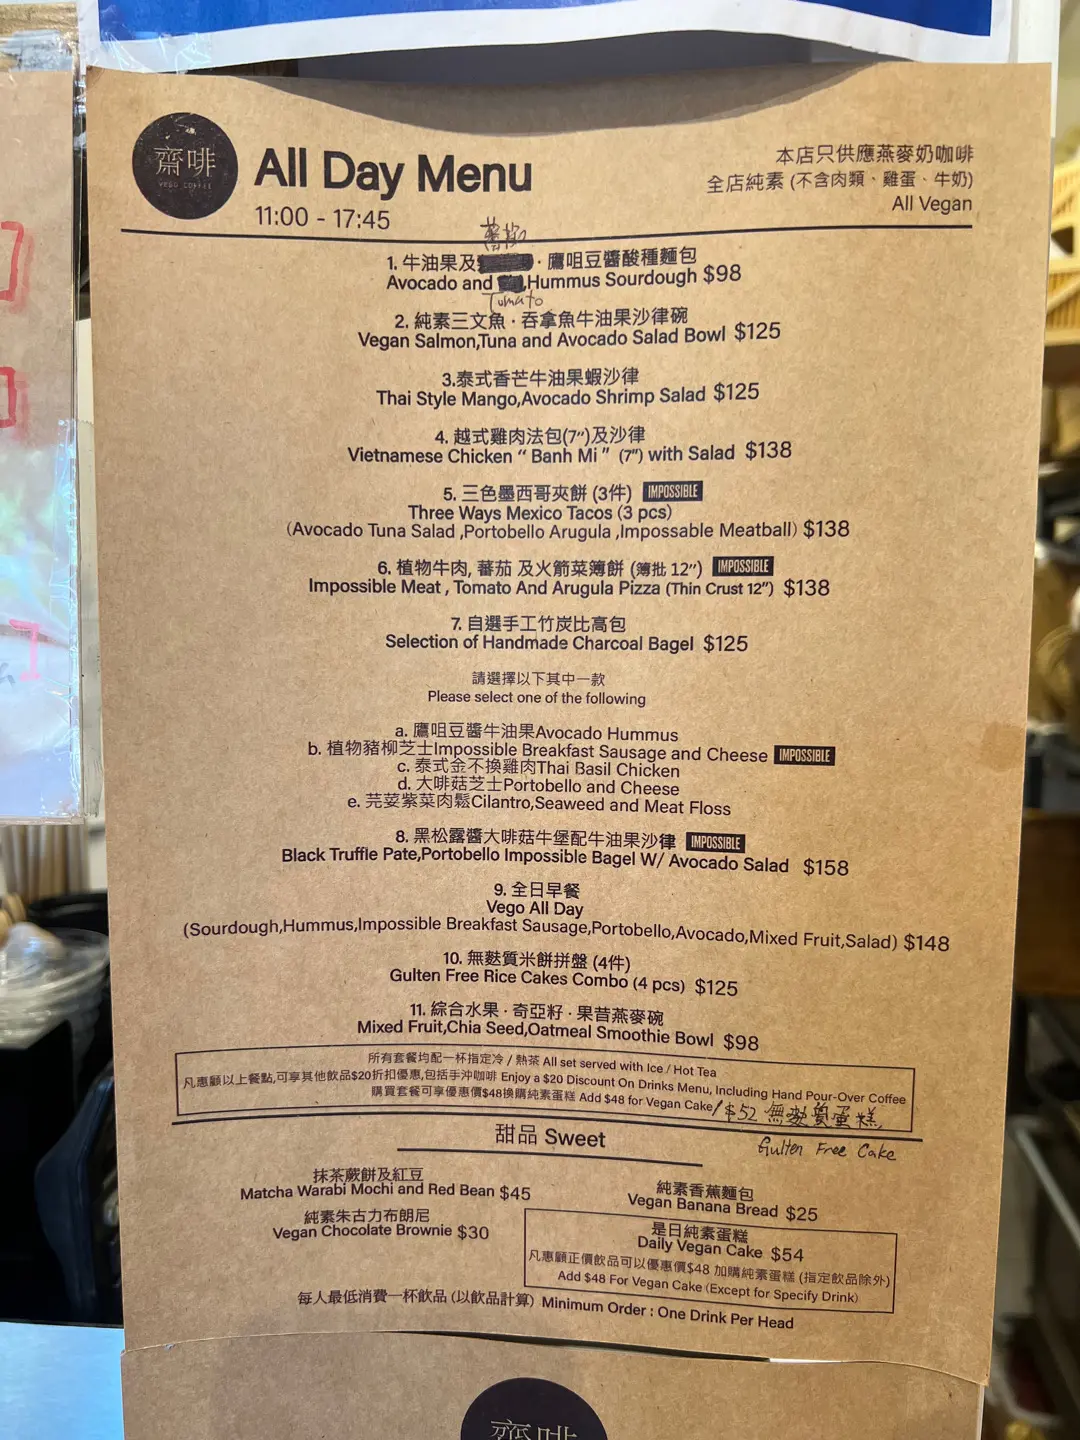 齋啡
VEGO COFFEE
All Day Menu
11:00 - 17:45
本店只供應燕麥奶咖啡
全店純素 (不含肉類、雞蛋、牛奶)
All Vegan
蕃茄
1. 牛油果及 · 鷹咀豆醬酸種麵包
Avocado and ,Hummus Sourdough $98
Tomato
2. 純素三文魚 · 吞拿魚牛油果沙律碗
Vegan Salmon,Tuna and Avocado Salad Bowl $125
3.泰式香芒牛油果蝦沙律
Thai Style Mango,Avocado Shrimp Salad $125
4. 越式雞肉法包(7”)及沙律
Vietnamese Chicken “ Banh Mi ” (7”) with Salad $138
5. 三色墨西哥夾餅 (3件) IMPOSSIBLE
Three Ways Mexico Tacos (3 pcs)
(Avocado Tuna Salad ,Portobello Arugula ,Impossable Meatball) $138
6. 植物牛肉, 蕃茄 及火箭菜簿餅 (簿批 12”) IMPOSSIBLE
Impossible Meat , Tomato And Arugula Pizza (Thin Crust 12”) $138
7. 自選手工竹炭比高包
Selection of Handmade Charcoal Bagel $125
請選擇以下其中一款
Please select one of the following
a. 鷹咀豆醬牛油果Avocado Hummus
b. 植物豬柳芝士Impossible Breakfast Sausage and Cheese IMPOSSIBLE
c. 泰式金不換雞肉Thai Basil Chicken
d. 大啡菇芝士Portobello and Cheese
e. 芫荽紫菜肉鬆Cilantro,Seaweed and Meat Floss
8. 黑松露醬大啡菇牛堡配牛油果沙律 IMPOSSIBLE
Black Truffle Pate,Portobello Impossible Bagel W/ Avocado Salad $158
9. 全日早餐
Vego All Day
(Sourdough,Hummus,Impossible Breakfast Sausage,Portobello,Avocado,Mixed Fruit,Salad) $148
10. 無麩質米餅拼盤 (4件)
Gulten Free Rice Cakes Combo (4 pcs) $125
11. 綜合水果 · 奇亞籽 · 果昔燕麥碗
Mixed Fruit,Chia Seed,Oatmeal Smoothie Bowl $98
所有套餐均配一杯指定冷 / 熱茶 All set served with Ice / Hot Tea
凡惠顧以上餐點,可享其他飲品$20折扣優惠,包括手沖咖啡 Enjoy a $20 Discount On Drinks Menu, Including Hand Pour-Over Coffee
購買套餐可享優惠價$48換購純素蛋糕 Add $48 for Vegan Cake / $52 無麩質蛋糕
Gulten Free Cake
甜品 Sweet
抹茶蕨餅及紅豆
Matcha Warabi Mochi and Red Bean $45
純素朱古力布朗尼
Vegan Chocolate Brownie $30
純素香蕉麵包
Vegan Banana Bread $25
是日純素蛋糕
Daily Vegan Cake $54
凡惠顧正價飲品可以優惠價$48 加購純素蛋糕 (指定飲品除外)
Add $48 For Vegan Cake (Except for Specify Drink)
每人最低消費一杯飲品 (以飲品計算) Minimum Order : One Drink Per Head
齋啡